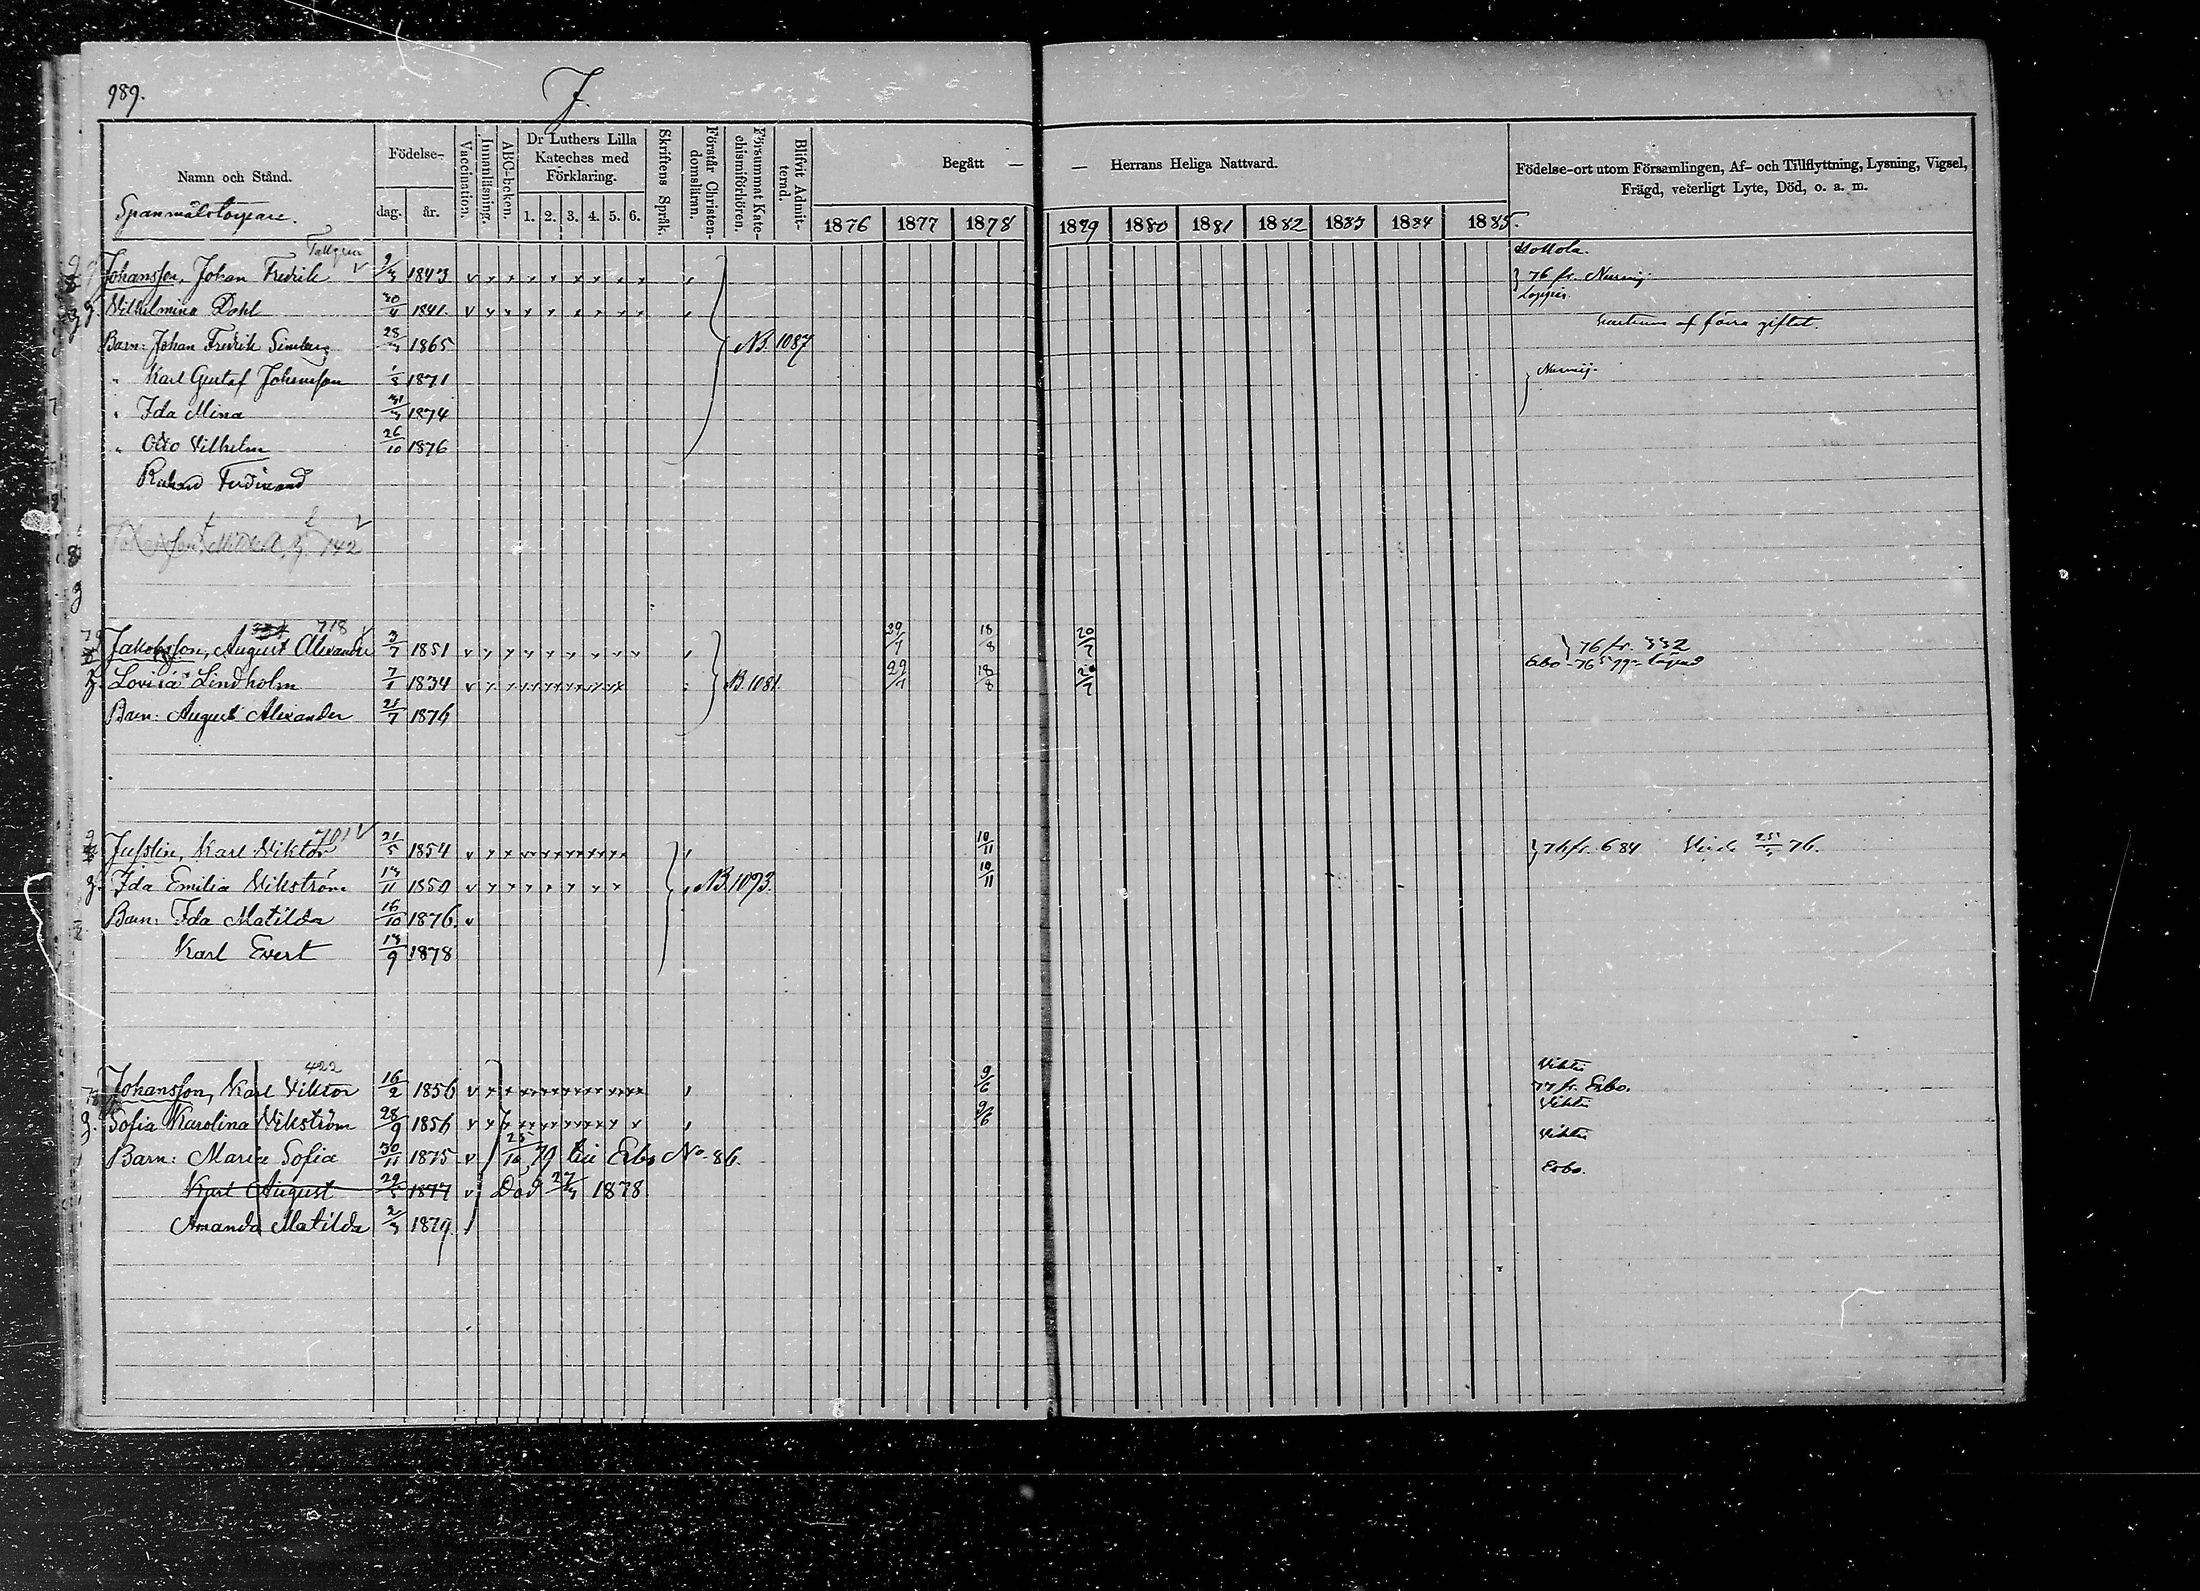 989.
J.
Namn och Stånd.
Födelse-
dag. år.
Vaccination.
Innanläsning.
ABC-boken.
Dr Luthers Lilla
Kateches med
Förklaring.
1. 2. 3. 4. 5. 6.
Skriftens Språk.
Förstår Christen-
domsläran.
Försummat Kate-
chismiförhören.
Blifvit Admit-
terad.
Begått — — Herrans Heliga Nattvard.
1876 1877 1878 1879 1880 1881 1882 1883 1884 1885.
Födelse-ort utom Församlingen, Af- och Tillflyttning, Lysning, Vigsel,
Frägd, veterligt Lyte, Död, o. a. m.
Hollola.
Johansson, Johan Fredrik 1843 76 fr. Nurmij.
Loppis.
Wilhelmina Dahl 30/4 1841.
Barn: Johan Fredrik 28/3 1865 NB. 1087 af förra giftet.
" Karl Gustaf Johansson 1/8 1871 Nurmij.
" Ida Mina 31/3 1874
" Otto Vilhelm 26/10 1876
Ferdinand
142
718
Jakobsson, August Alexander 3/7 1851 29/7 18/8 20/7 76 fr. 332
Lovisa Lindholm 7/1 1834 B. 1081. 29/7 18/8 20/7
Barn: August Alexander 21/7 1876
701
Jusslin, Karl Viktor 21/5 1854 10/11 76 fr. 684 76.
Ida Emilia Vikström 13/11 1850 NB. 1093. 10/11
Barn: Ida Matilda 16/10 1876.
Karl Evert 13/9 1878
422
Vikti
Johansson, Karl Viktor 16/2 1856 9/6 77 fr. Esbo.
Vikti
Sofia Karolina Vikström 28/9 1856 9/6
Vikti
Barn: Maria Sofia 30/11 1875 25/10 79 till Esbo No 86.
Esbo.
Karl August 1877 Död 27/3 1878
Amanda Matilda 2/3 1879.